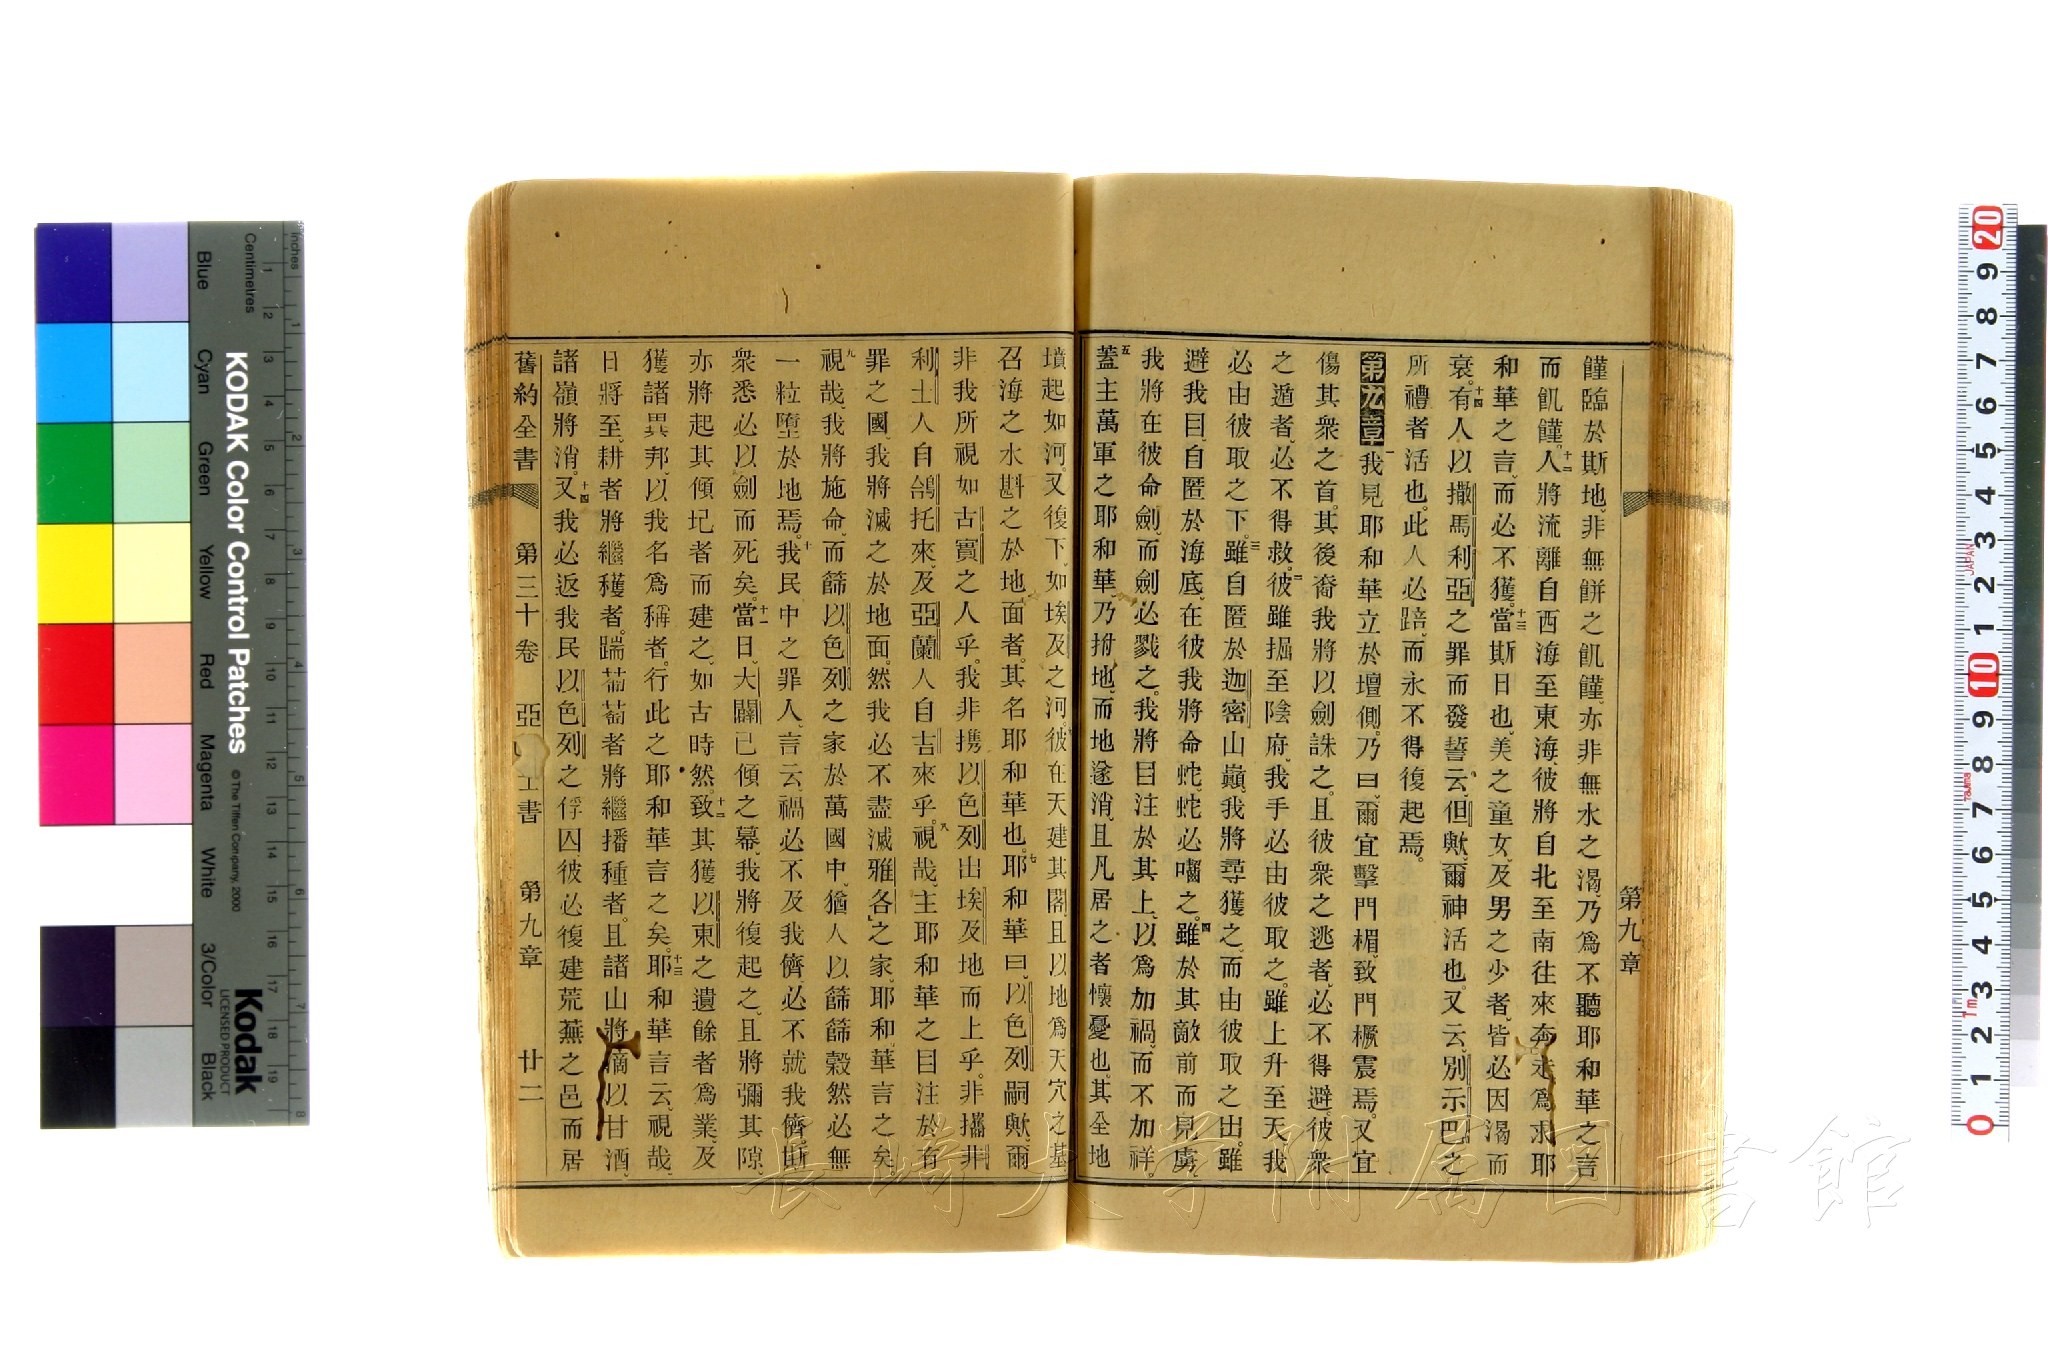 第九章
饉臨於斯地、非無餅之飢饉、亦非無水之渴、乃爲不聽耶和華之言
而飢饉。十二人將流離自西海至東海、彼將自北至南往來奔走爲求耶
和華之言、而必不獲。十三當斯日也、美之童女、及男之少者、皆必因渴而
衰。十四有人以撒馬利亞之罪而發誓云、但歟、爾神活也、又云、別示巴之
所禮者活也。此人必踣、而永不得復起焉。
第九章一我見耶和華立於壇側、乃曰、爾宜擊門楣、致門橛震焉。又宜
傷其衆之首。其後裔我將以劍誅之、且彼衆之逃者、必不得避。彼衆
之遁者、必不得救。二彼雖掘至陰府、我手必由彼取之。雖上升至天、我
必由彼取之下。三雖自匿於迦密山巔、我將尋獲之、而由彼取之出。雖
避我目、自匿於海底、在彼我將命蛇、蛇必嚙之。四雖於其敵前而見虜、
我將在彼命劍、而劍必戮之。我將目注於其上、以爲加禍、而不加祥。
五蓋主萬軍之耶和華、乃拊地、而地遂消、且凡居之者懷憂也、其全地
墳起如河、又復下、如埃及之河。彼在天建其閣、且以地爲天穴之基、
召海之水斟之於地面者、其名耶和華也。七耶和華曰、以色列嗣歟、爾
非我所視如古實之人乎。我非携以色列出埃及地而上乎。非攜非
利士人自鴿托來、及亞蘭人自吉來乎。八視哉、主耶和華之目注於有
罪之國、我將滅之於地面。然我必不盡滅雅各之家。耶和華言之矣。
九視哉、我將施命、而篩以色列之家於萬國中、猶人以篩篩穀然、必無
一粒墮於地焉。十我民中之罪人、言云、禍必不及我儕、必不就我儕、斯
衆悉必以劍而死矣。十一當日、大闢已傾之幕、我將復起之、且將彌其隙、
亦將起其傾圮者而建之、如古時然。十二致其獲以東之遺餘者爲業、及
獲諸異邦、以我名爲稱者。行此之耶和華言之矣。十三耶和華言云、視哉、
日將至、耕者將繼穫者、踹葡萄者將繼播種者。且諸山將滴以甘酒、
諸嶺將消。十四又我必返我民以色列之俘囚、彼必復建荒蕪之邑而居
舊約全書 第三十卷 亞 書 第九章 廿二
長崎大学附属図書館
Inches
Centimetres
KODAK Color Control Patches
© The Tiffen Company, 2000
Kodak
LICENSED PRODUCT
Blue
Cyan
Green
Yellow
Red
Magenta
White
3/Color
Black
JAPAN
1m